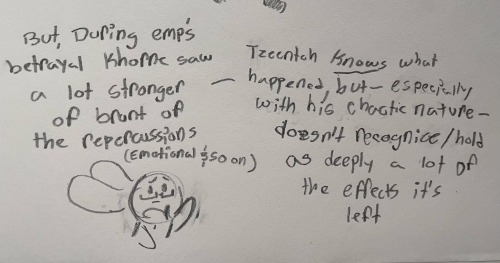 But, During emp's
betrayal Khorne saw
a lot stronger
of brunt of
the repercussions
(Emotional & so on)
Tzeentch Knows what
— happened, but - especially
with his chaotic nature -
doesn't recognize/hold
as deeply a lot of
the effects it's
left